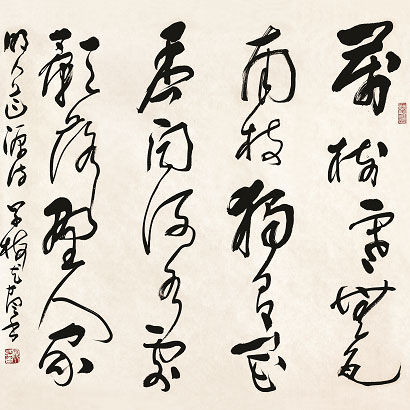 萬樹寒無色
南枝獨有花
香聞流水處
影落野人家
明人道源詩 早梅